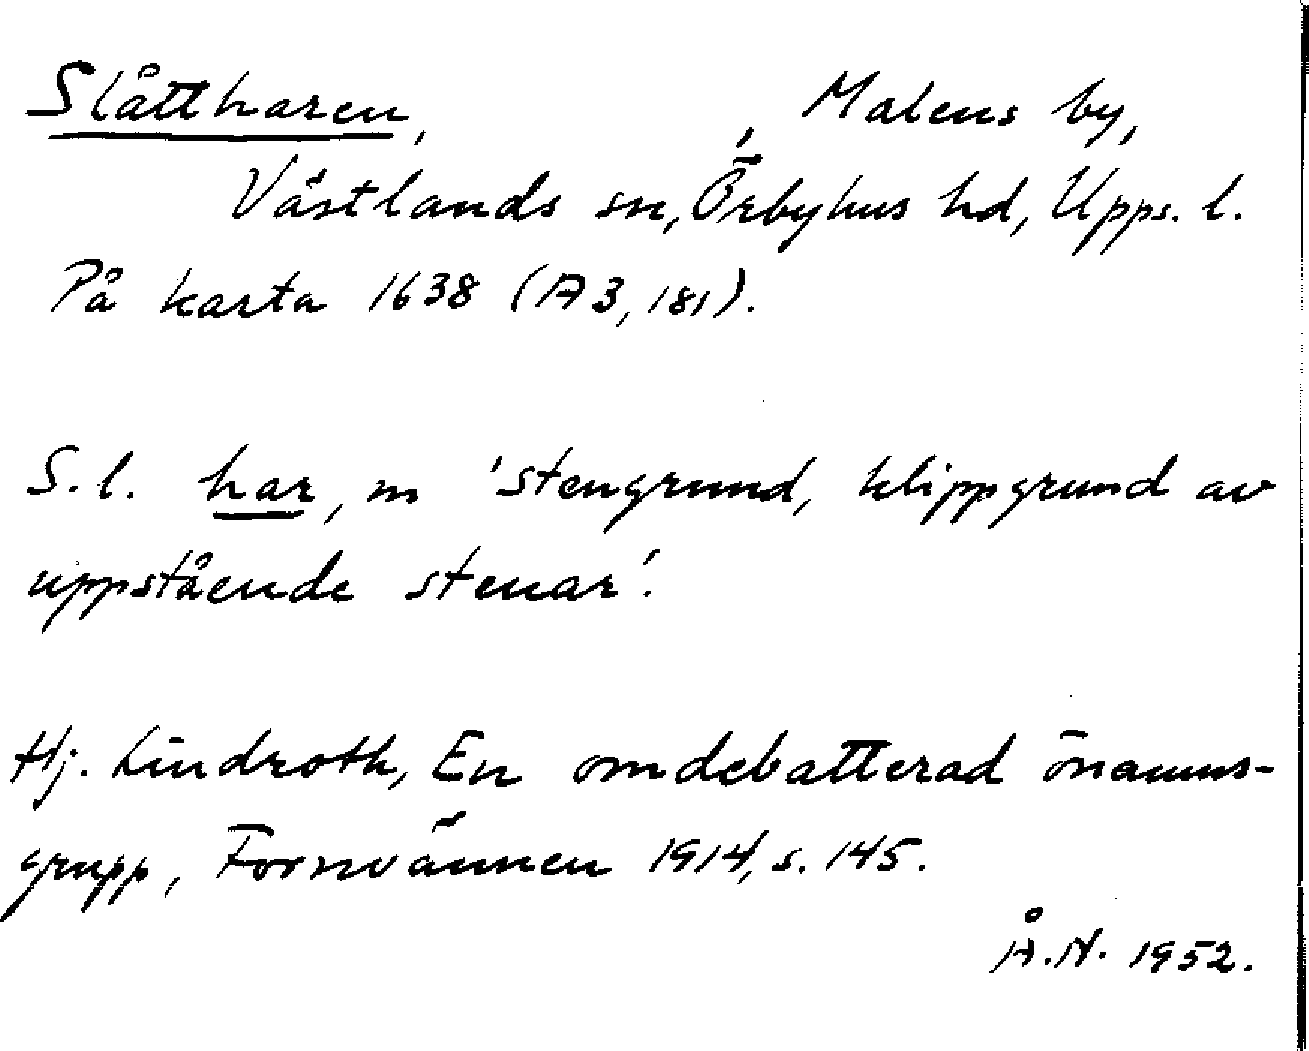 Slåttharen, , Malens by,
Västlands sn, Örbyhus hd, Upps. l.
På karta 1638 (A3, 181).
S. l. har, m 'stengrund, klippgrund av
uppstående stenar'.
Hj. Lindroth, En omdebatterad önamns-
grupp, Fornvännen 1914, s. 145.
Å. N. 1952.